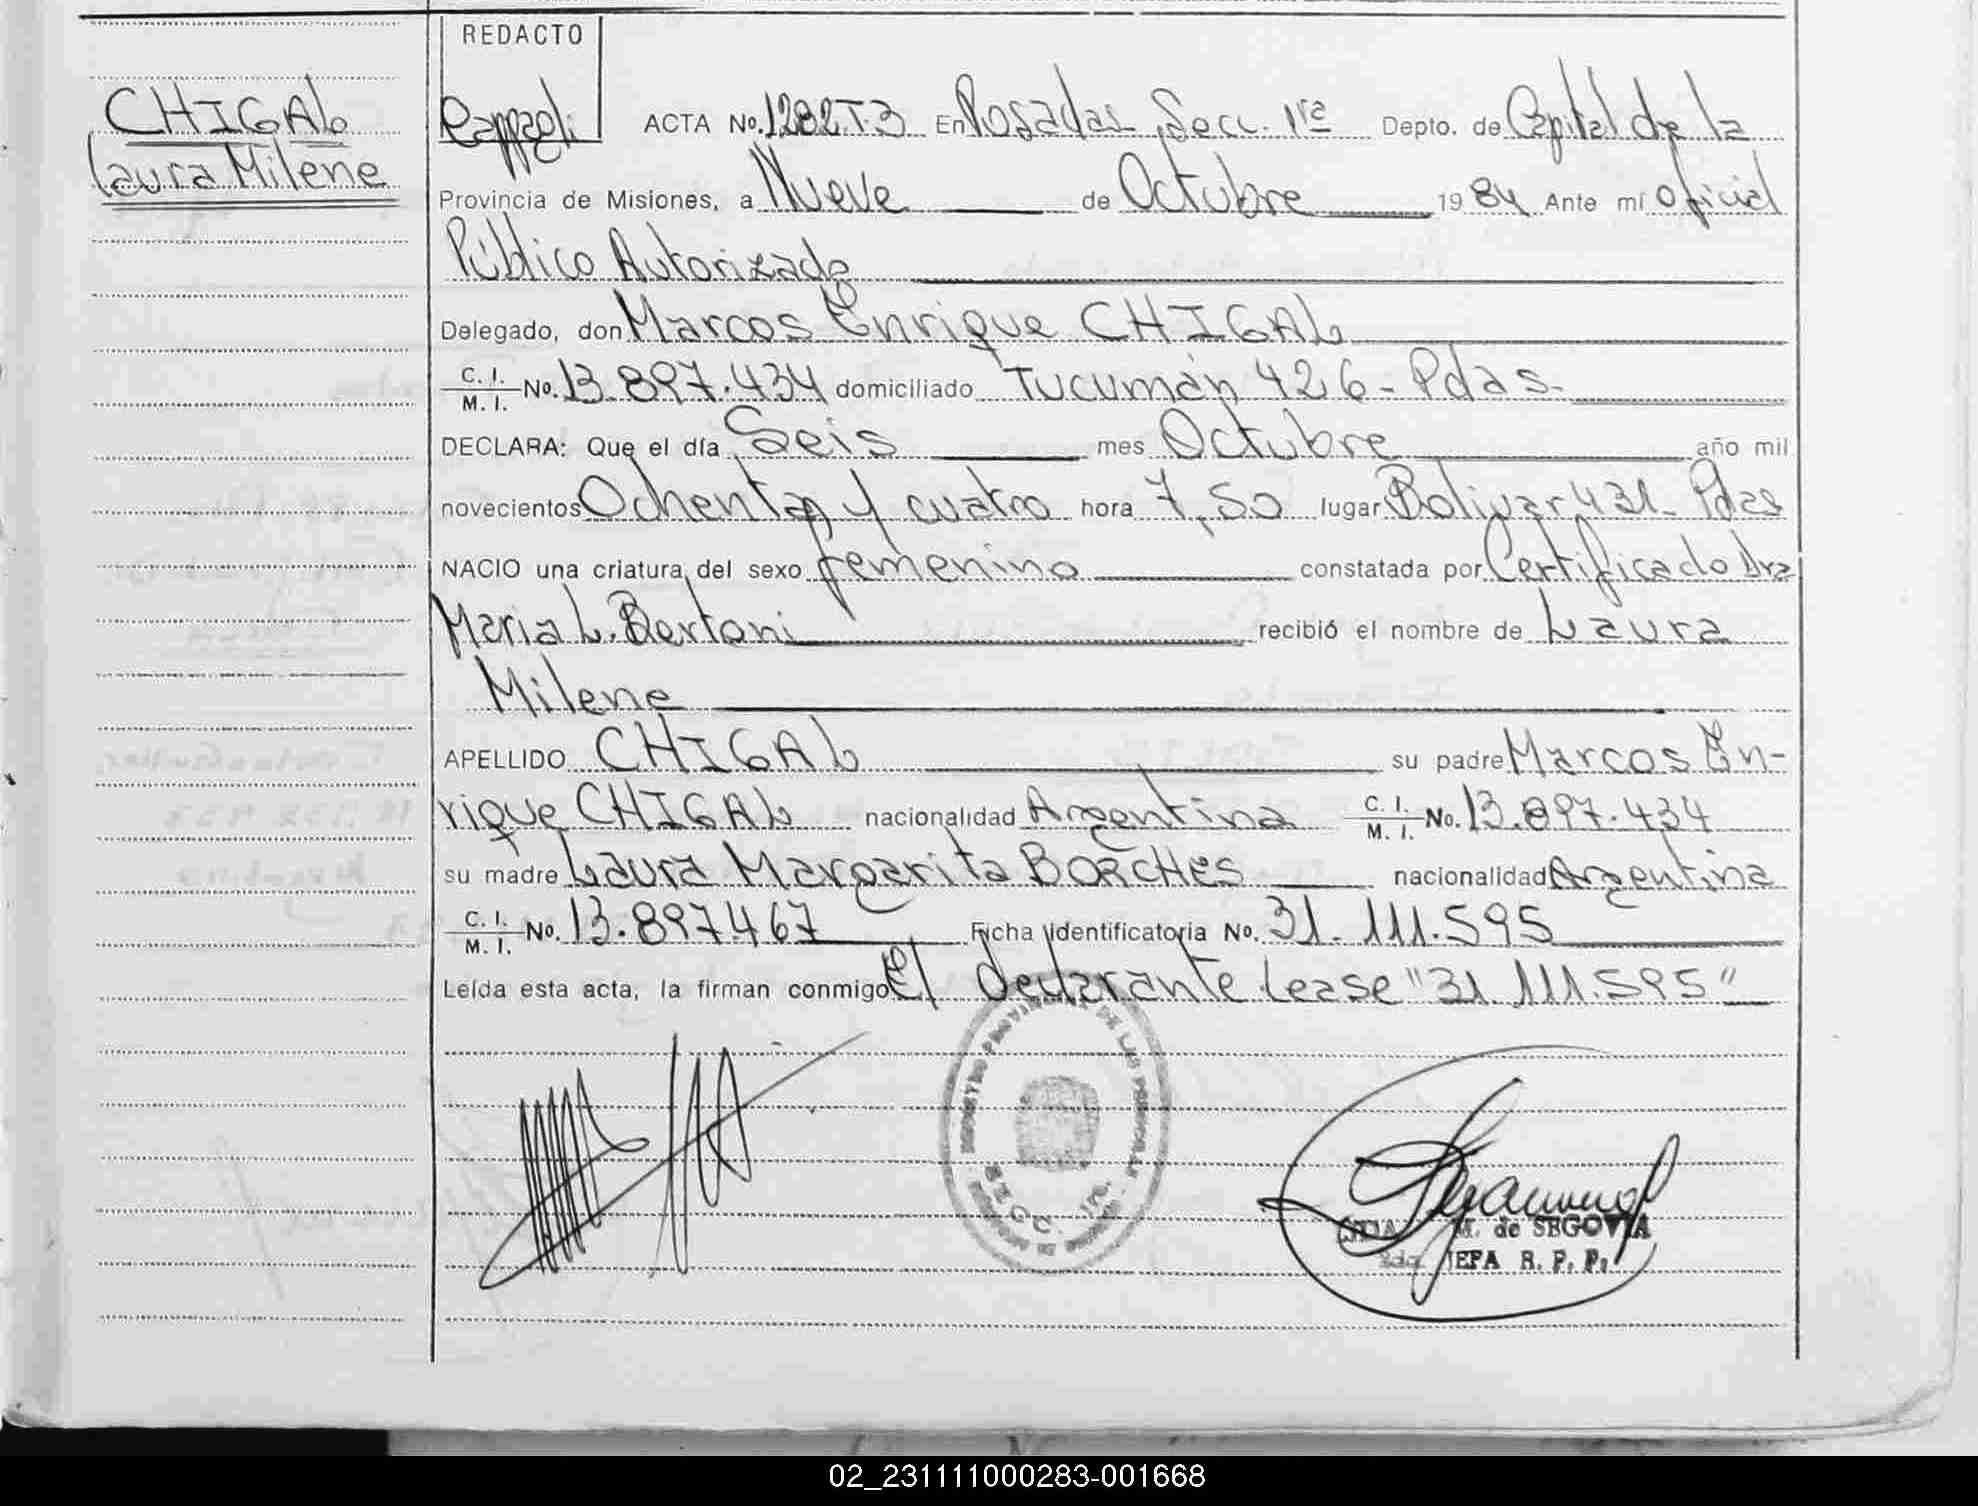 REDACTO
CHIGAL
Laura Milene
Rappagli ACTA No. 1282 T.3 En Posadas Secc. 1ra Depto. de Capital de la
Provincia de Misiones, a Nueve de Octubre 1984 Ante mí oficial
Público Autorizado
Delegado, don Marcos Enrique CHIGAL
C. I. M. I. No. 13.897.434 domiciliado Tucumán 426 - Pdas.
DECLARA: Que el día Seis mes Octubre año mil
novecientos Ochenta y cuatro hora 7,50 lugar Bolivar 431 - Pdas
NACIO una criatura del sexo femenino constatada por Certificado Dra
Maria L. Bertoni recibió el nombre de Laura
Milene
APELLIDO CHIGAL su padre Marcos En-
rique CHIGAL nacionalidad Argentina C. I. M. I. No. 13.897.434
su madre Laura Margarita BORCHES nacionalidad Argentina
C. I. M. I. No. 13.897.467 Ficha Identificatoria No. 31.111.595
Leída esta acta, la firman conmigo El declarante Lease "31.111.595"
REGISTRO PROVINCIAL DE LAS PERSONAS
M. de SEGOVIA
JEFA R. P. P.
02_231111000283-001668